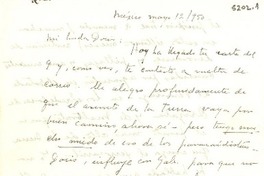 5202.1
México mayo 12/950.
Mi linda Doris:
Hoy ha llegado tu carta del
9 y, como ves, te contesto a vuelta de
correo. Me alegro profundamente de
que el asunto de la tierra vaya por
buen camino, ahora sí - pero tengo mu-
cho miedo de eso de los
Doris, influye con Gab. para que no